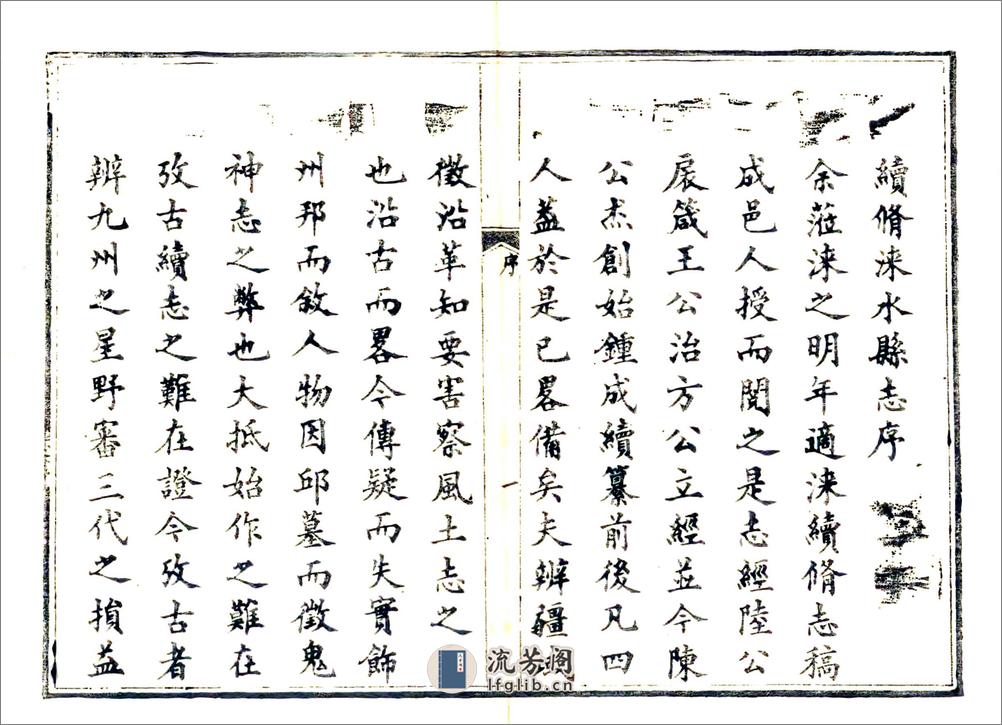 續脩淶水縣志序
余蒞淶之明年適淶續脩志稿
成邑人授而閱之是志經陸公
扆箴王公治方公立經並今陳
公杰創始鍾成續纂前後凡四
人蓋於是已畧備矣夫辨疆
序
一
徵沿革知要害察風土志之
也沿古而畧今傳疑而失實飾
州邦而敘人物因邱墓而徵鬼
神志之弊也大抵始作之難在
攷古續志之難在證今攷古者
辨九州之星野審三代之損益
流芳閣
lfglib.cn